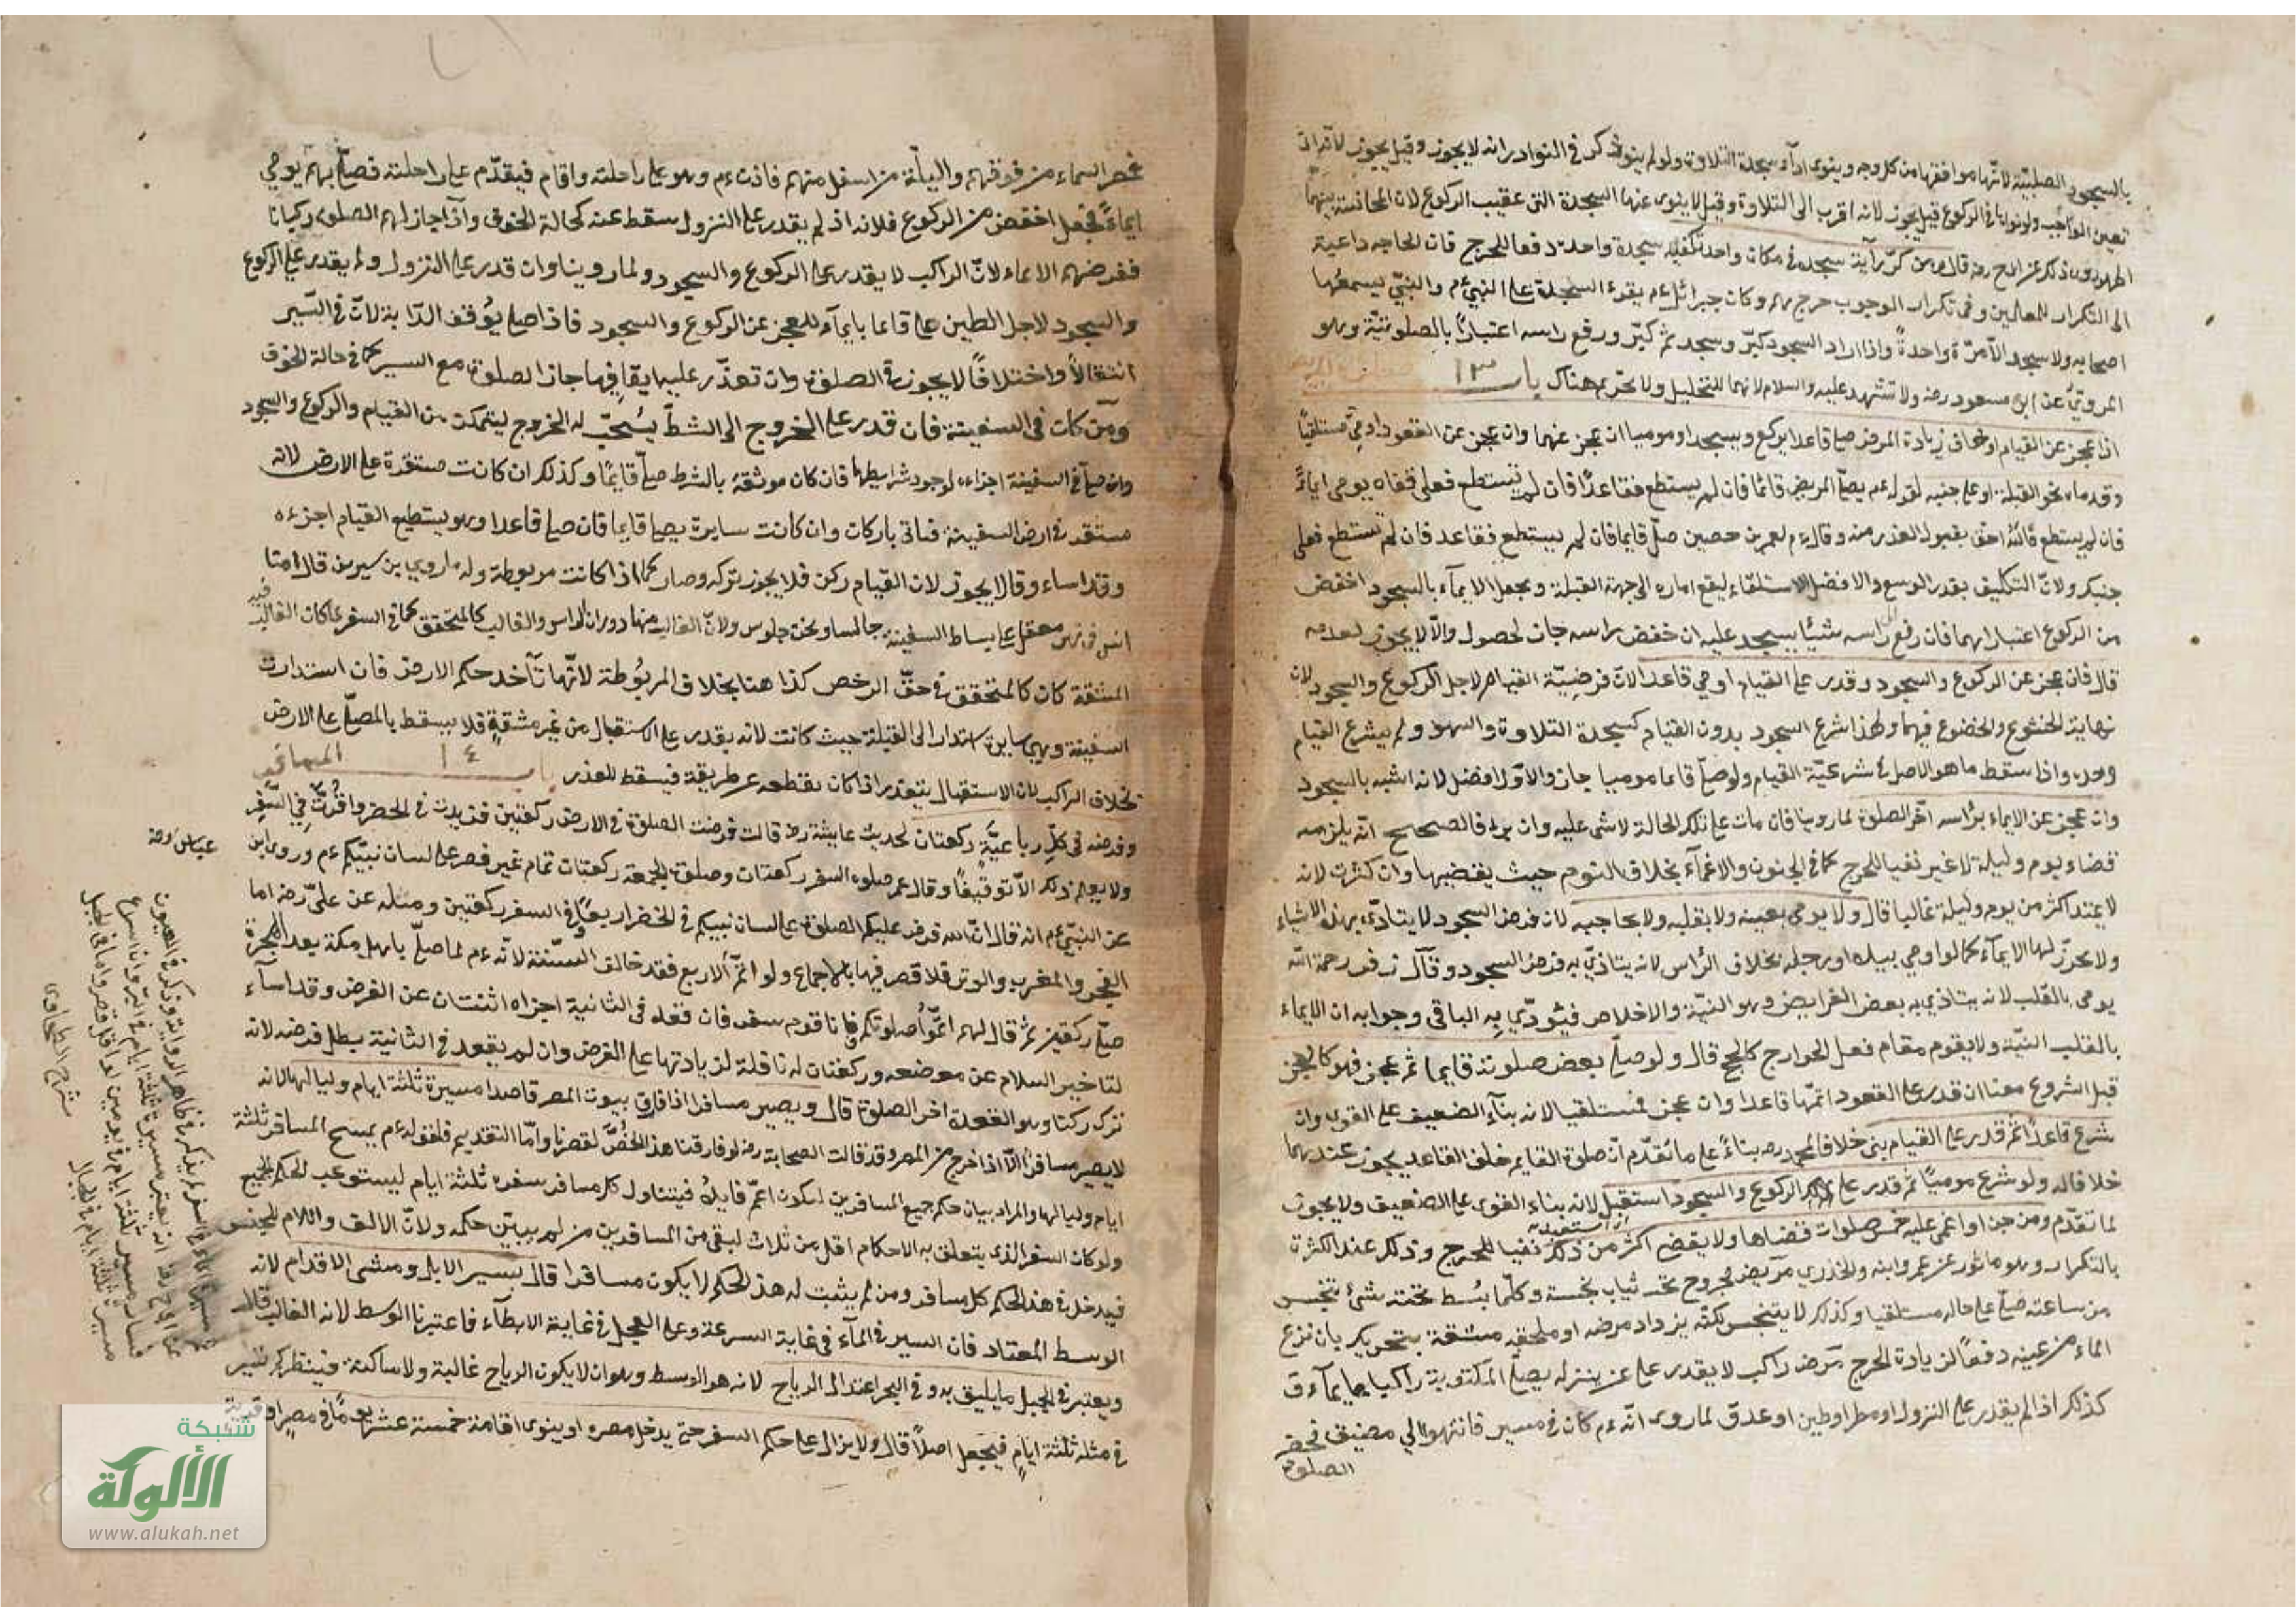 بالسجود الصلبيّة لانّها موافقتها من كل وجه وينوى اداء سجدة التلاوة ولو لم ينو ذكر في النوادر انه لا يجوز وقيل يجوز
تعين الواجب ولو نواها في الركوع قيل يجوز لانه اقرب الى التلاوة وقيل لا ينوى عنها السجدة التى عقيب الركوع لان المجانسة بينهما
قال ومن كرّر آية سجدة في مكان واحد تكفيه سجدة واحدة دفعا للحرج فان الحاجه داعية
الى التكرار للمعلمين وفى تكرار الوجوب حرج بهم وكان جبرائيل ءم يقرء السجدة على النبىءم والنبيّ يسمعها
اصحابه ولا يسجد الّا مرّة واحدةً واذا اراد السجود كبّر وسجد ثم كبّر ورفع راسه اعتبارًا بالصلوتيّة وهو
المروىّ عن ابن مسعود رضه ولا تشهد عليه والسلام لانهما للتحليل ولا تحريم هناك باب ١٣
اذا عجز عن القيام او خاف زيادة المرض صلى قاعدا يركع ويسجد او موميا ان عجز عنهما وان عجز عن القعود اومى مستلقياً
وقدماه نحو القبلة او على جنبه لقوله ءم يصلّى المريض قائما فان لم يستطع فقاعدًا فان لم يستطع فعلى قفاه يومى ايماءً
فان لم يستطع فالله احق بقبول العذر منه وقال ءم لعمرن حصين صلّ قايما فان لم يستطع فقاعد فان لم تستطع فعلى
جنبك ولانّ التكليف بقدر الوسع والافضل الاستلقاء ليقع اماره الى جهة القبلة ويجعل الايمآء بالسجود اخفض
من الركوع اعتبارا بهما فان رفع الى راسه شيئا يسجد عليه ان خفض راسه جاز لحصول والّا لا يجوز لعدمه
قال فان عجز عن الركوع والسجود وقدر على القيام اومى قاعدا لانّ فرضيّة القيام لاجل الركوع والسجود لان
نهاية الخشوع والخضوع فيهما ولهذا شرع السجود بدون القيام كسجدة التلاوة والسهو ولم يشرع القيام
وحده واذا سقط ما هو الاصل سقط شرعيّة القيام ولو صلّى قائما موميا جاز والاوّل افضل لانه اشبه بالسجود
وان عجز عن الايماء برأسه اخّر الصلوة لما روينا فان مات على تلك الحالة لا شى عليه وان برا فالصحيح انّه يلزمه
قضاء يوم وليلة لا غير نفيا للحرج كما في الجنون والاغمآء بخلاف النوم حيث يقضيها وان كثرت لانه
لا يمتد اكثر من يوم وليلة غالبا قال ولا يومى بعينه ولا بقلبه ولا بحاجبه لان فرض السجود لا يتادّى بهذه الاشياء
ولا يجوز لها الايمآء كما لو اومى بيده او رجله بخلاف الرأس لانه يتاذي به فرض السجود وقال زفر رحمة الله
يومى بالقلب لانه يتاذي به بعض الفرايض وهو النيّة والاخلاص فيؤدّي به الباقى وجوابه ان الايماء
بالقلب النيّة ولا يقوم مقام فعل الجوارح كالحج قال ولو صلّى بعض صلوته قايما ثم عجز فهو كالعجز
قبل الشروع معناه ان قدر على القعود اتمّها قاعدا وان عجز فمستلقيا لانه بنآء الضعيف على القوى وان
شرع قاعدًا ثم قدر على القيام بنى خلافا لمحمد ره بناءً على ما تقدّم انّ صلوة القايم خلف القاعد يجوز عندهما
خلافا له ولو شرع موميًا ثم قدر على الركوع والسجود استقبل لانه بناء القوى على الضعيف ولا يجوز
لما تقدّم ومن جن او اغمى عليه خمس صلوات قضاها ولا يقضى اكثر من ذلك نفيا للحرج وذلك عند الكثرة
بالتكرار وهو ماثور عن عمر وابنه والخدري مريض مجروح تحته ثياب نجسة وكلّما بُسط تحته شئ تنجس
من ساعته صلّى على حاله مستلقيا وكذلك لا يتنجس لكنّه يزداد مرضه او يلحقه مشقة بتحريك بان نزع
الماء من عينه دفعًا لزيادة الحرج مرض راكب لا يقدر على من ينزله يصلّى المكتوبة راكبا بايمآء
كذلك اذا لم يقدر على النزول او مطر او طين او عدوّ لما روى انّه ءم كان في مسير فانتهوا الي مضيق فحضر
الصلوة
السماء من فوقهم والبلّة من اسفل منهم فاذن ءم وهو على راحلته واقام فيقدّم على راحلته فصلّى بهم يومي
ايماءً فجعل اخفض من الركوع فلانه اذ لم يقدر على النزول سقط عنه كحالة الخوف واذا جاز لهم الصلوة ركبانا
ففرضهم الايماء لانّ الراكب لا يقدر على الركوع والسجود ولما روينا وان قدر على النزول ولم يقدر على الركوع
والسجود لاجل الطين صلى قائما بايمآء للعجز عن الركوع والسجود فاذا صلى يؤقف الدّابة لانّ في السّير
انتقالاً واختلافاً لا يجوز في الصلوة وان تعذّر عليه ايقافها جاز الصلوة مع السير كما في حالة الخوف
ومن كان فى السفينة فان قدر على الخروج الى الشطّ يُستحبّ له الخروج ليتمكن من القيام والركوع والسجود
وان صلّى في السفينة اجزاءه لوجود شرايطها فان كان موثقةً بالشط صلّى قايمًا وكذلك ان كانت مستقرة على الارض لانه
مستقر في ارض السفينة فياتى باركان وان كانت سايرة يصلى قايما فان صلى قاعدا وهو يستطيع القيام اجزءه
وقد اساء وقالا يجوز لان القيام ركن فلا يجوز تركه وصار كما اذا كانت مربوطة وله ما روي بن سيرين قال امّنا
انس فى نهر معقل على بساط السفينة جالسا ونحن جلوس ولانّ الغالب فيها دوران الراس والغالب كالمتحقق كما في السفر لما كان الغالب فيه
المشقة كان كالمتحقق في حقّ الرخص كذا هنا بخلاف المربُوطة لانّها تأخد حكم الارض فان استدارت
السفينة وهى سايرة استدار الى القبلة حيث كانت لانه يقدر على الاستقبال من غير مشقة فلا يسقط بالمصلّى على الارض
بخلاف الراكب لان الاستقبال يتعذر اذا كان يقطعه عن طريقه فيسقط للعذر باب ١٤ المسافر
وفرضه فى كلّ رباعيّة ركعتان لحديث عايشة رضه قالت فرضت الصلوة في الارض ركعتين فزيدت في الحضر واقرّت في السّفر
ولا يعلم ذلك الّا توقيفًا وقال عمر صلوة السفر ركعتان وصلوة الجمعة ركعتان تمام غير قصر على لسان نبيّكم ءم وروى ابن
عباس رضه
عن النبيّ ءم انه قال انّ الله فرض عليكم الصلوة على لسان نبيكم في الحضر اربعًا وفى السفر ركعتين ومثله عن علىّ رضه اما
الفجر والمغرب والوتر فلا قصر فيها بالاجماع ولو اتمّ الاربع فقد خالف السّنة لانّه ءم لما صلّى باهل مكة بعد الهجرة
صلّى ركعتين ثمّ قال لهم اتمّوا صلوتكم فانا قوم سفر فان قعد فى الثانية اجزاه اثنتان عن الفرض وقد اسآء
لتاخير السلام عن موضعه وركعتان له نافلة لزيادتها على الفرض وان لم يقعد في الثانية بطل فرضه لانه
ترك ركنا وهو القعدة اخر الصلوة قال ويصير مسافرا اذا فارق بيوت المصر قاصدا مسيرة ثلثة ايام ولياليها لانه
لا يصير مسافرًا الّا اذا خرج من المصر وقد قالت الصحابة رضه لو فارقنا هذا الخُصّ لقصرنا وامّا التقديم فلقوله ءم يمسح المسافر ثلثة
ايام ولياليها والمراد بيان حكم جميع المسافرين ليكون اعمّ فايدةً فيتناول كل مسافر سفره ثلثة ايام ليستوعب الحكم الجميع
ولو كان السفر الذى يتعلق به الاحكام اقل من ثلاث لبقى من المسافرين من لم يبين حكمه ولانّ الالف واللام للجنس
فيدخل في هذا الحكم كل مسافر ومن لم يثبت له هذا الحكم لا يكون مسافرا قال بسير الابل ومشى الاقدام لانه
الوسط المعتاد فان السير في المآء فى غاية السرعة وعلى العجل في غاية الابطآء فاعتبرنا الوسط لانه الغالب قال
ويعتبر في الجبل ما يليق به وفي البحر اعتدال الرياح لانه هو الوسط وهو ان لا يكون الرياح غالبة ولا ساكنة فينظركم تسير
في مثله ثلثة ايام فيجعل اصلًا قال ولا يزال على حكم السفر حتى يدخل مصره او ينوى اقامة خمسة عشر يومًا في مصر او قرية
شرح الطحاوى
شبكة
الألوكة
www.alukah.net